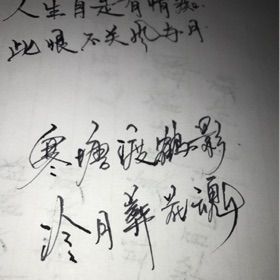 人生自是有情痴
此恨不关风与月
寒塘渡鹤影
冷月葬花魂